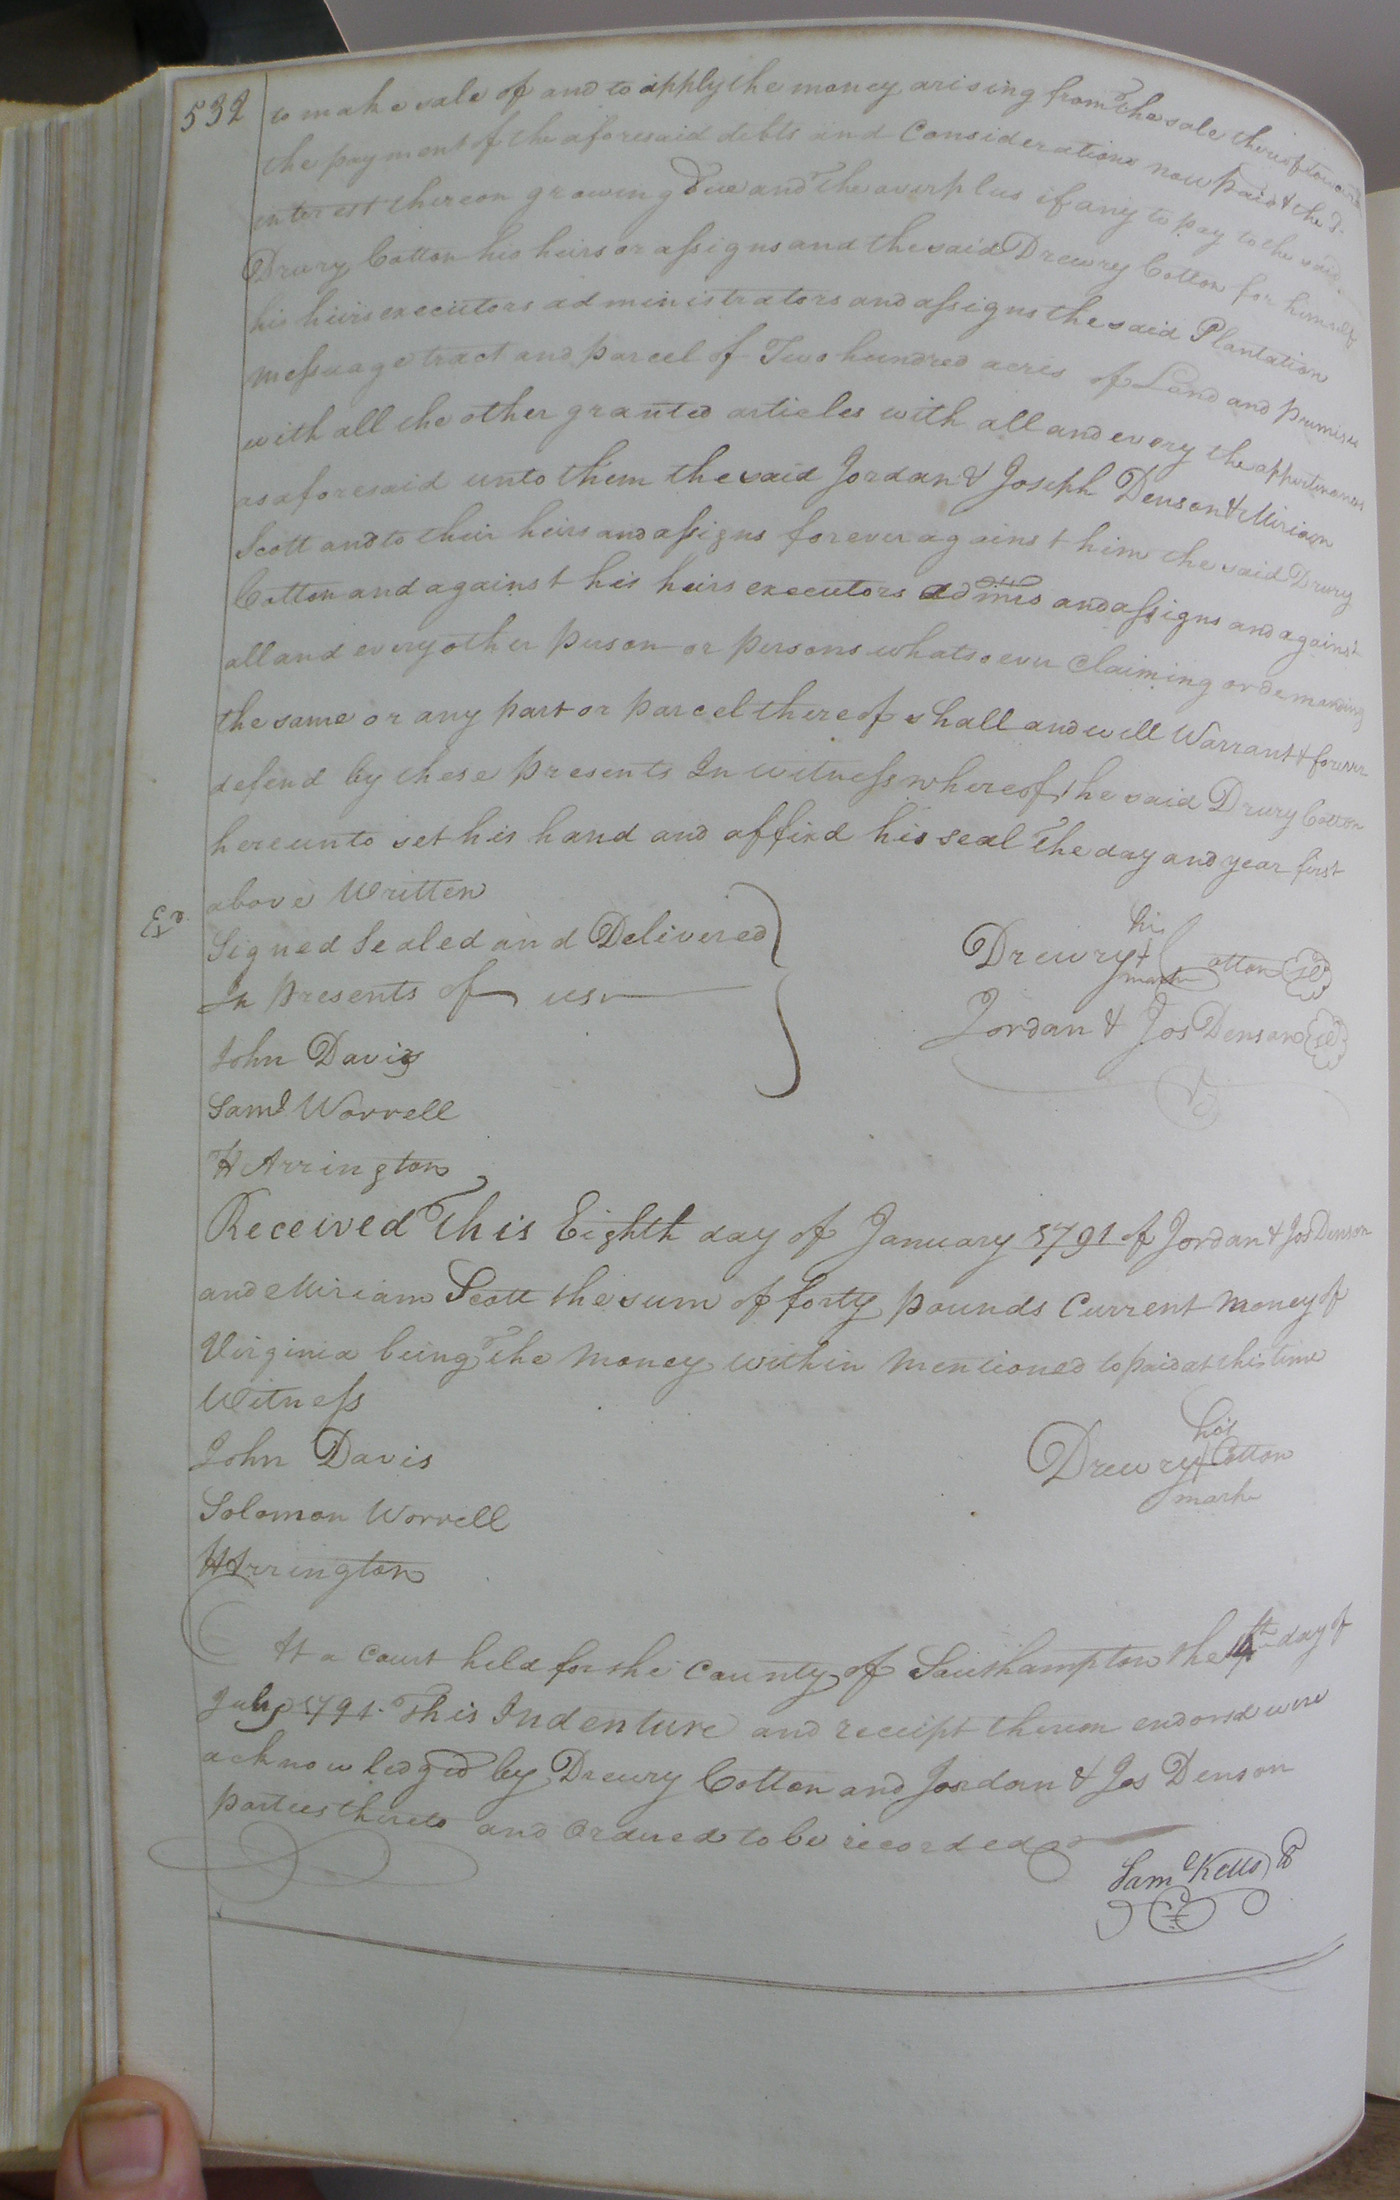 532
to make sale of and to apply the money arising from the sale thereof towards
the payment of the aforesaid debts and Considerations now paid & the
interest thereon growing Due and The overplus if any to pay to the said
Drury Cotton his heirs or assigns and the said Drewry Cotton for himself
his heirs executors administrators and assigns the said Plantation
Messuage tract and parcel of Two hundred acres of Land and Premises
with all the other granted articles with all and every the appurtenances
as aforesaid unto them the said Jordan & Joseph Denson & Miriam
Scott and to their heirs and assigns forever against him the said Drury
Cotton and against his heirs executors admrs and assigns and against
all and every other person or persons whatsoever Claiming or demanding
the same or any part or parcel thereof shall and will Warrant & forever
defend by these Presents In witness whereof the said Drury Cotton
hereunto set his hand and affixd his seal The day and year first
above Written
Exd.
Signed Sealed and Delivered
In Presents of us
John Davis
Saml Worrell
H Arrington
his
Drewry + Cotton
mark
Jordan & Jos Denson
Received This Eighth day of January 1791 of Jordan & Jos Denson
and Miriam Scott the sum of forty pounds Current Money of
Virginia being The Money within Mentioned to paid at this time
Witness
John Davis
Solomon Worrell
H Arrington
his
Drewry + Cotton
mark
At a Court held for the County of Southampton the 14th day of
July 1791. This Indenture and receipt thereon endorsd were
acknowledged by Drewry Cotton and Jordan & Jos Denson
parties thereto and Ordered to be recorded
Saml Kello